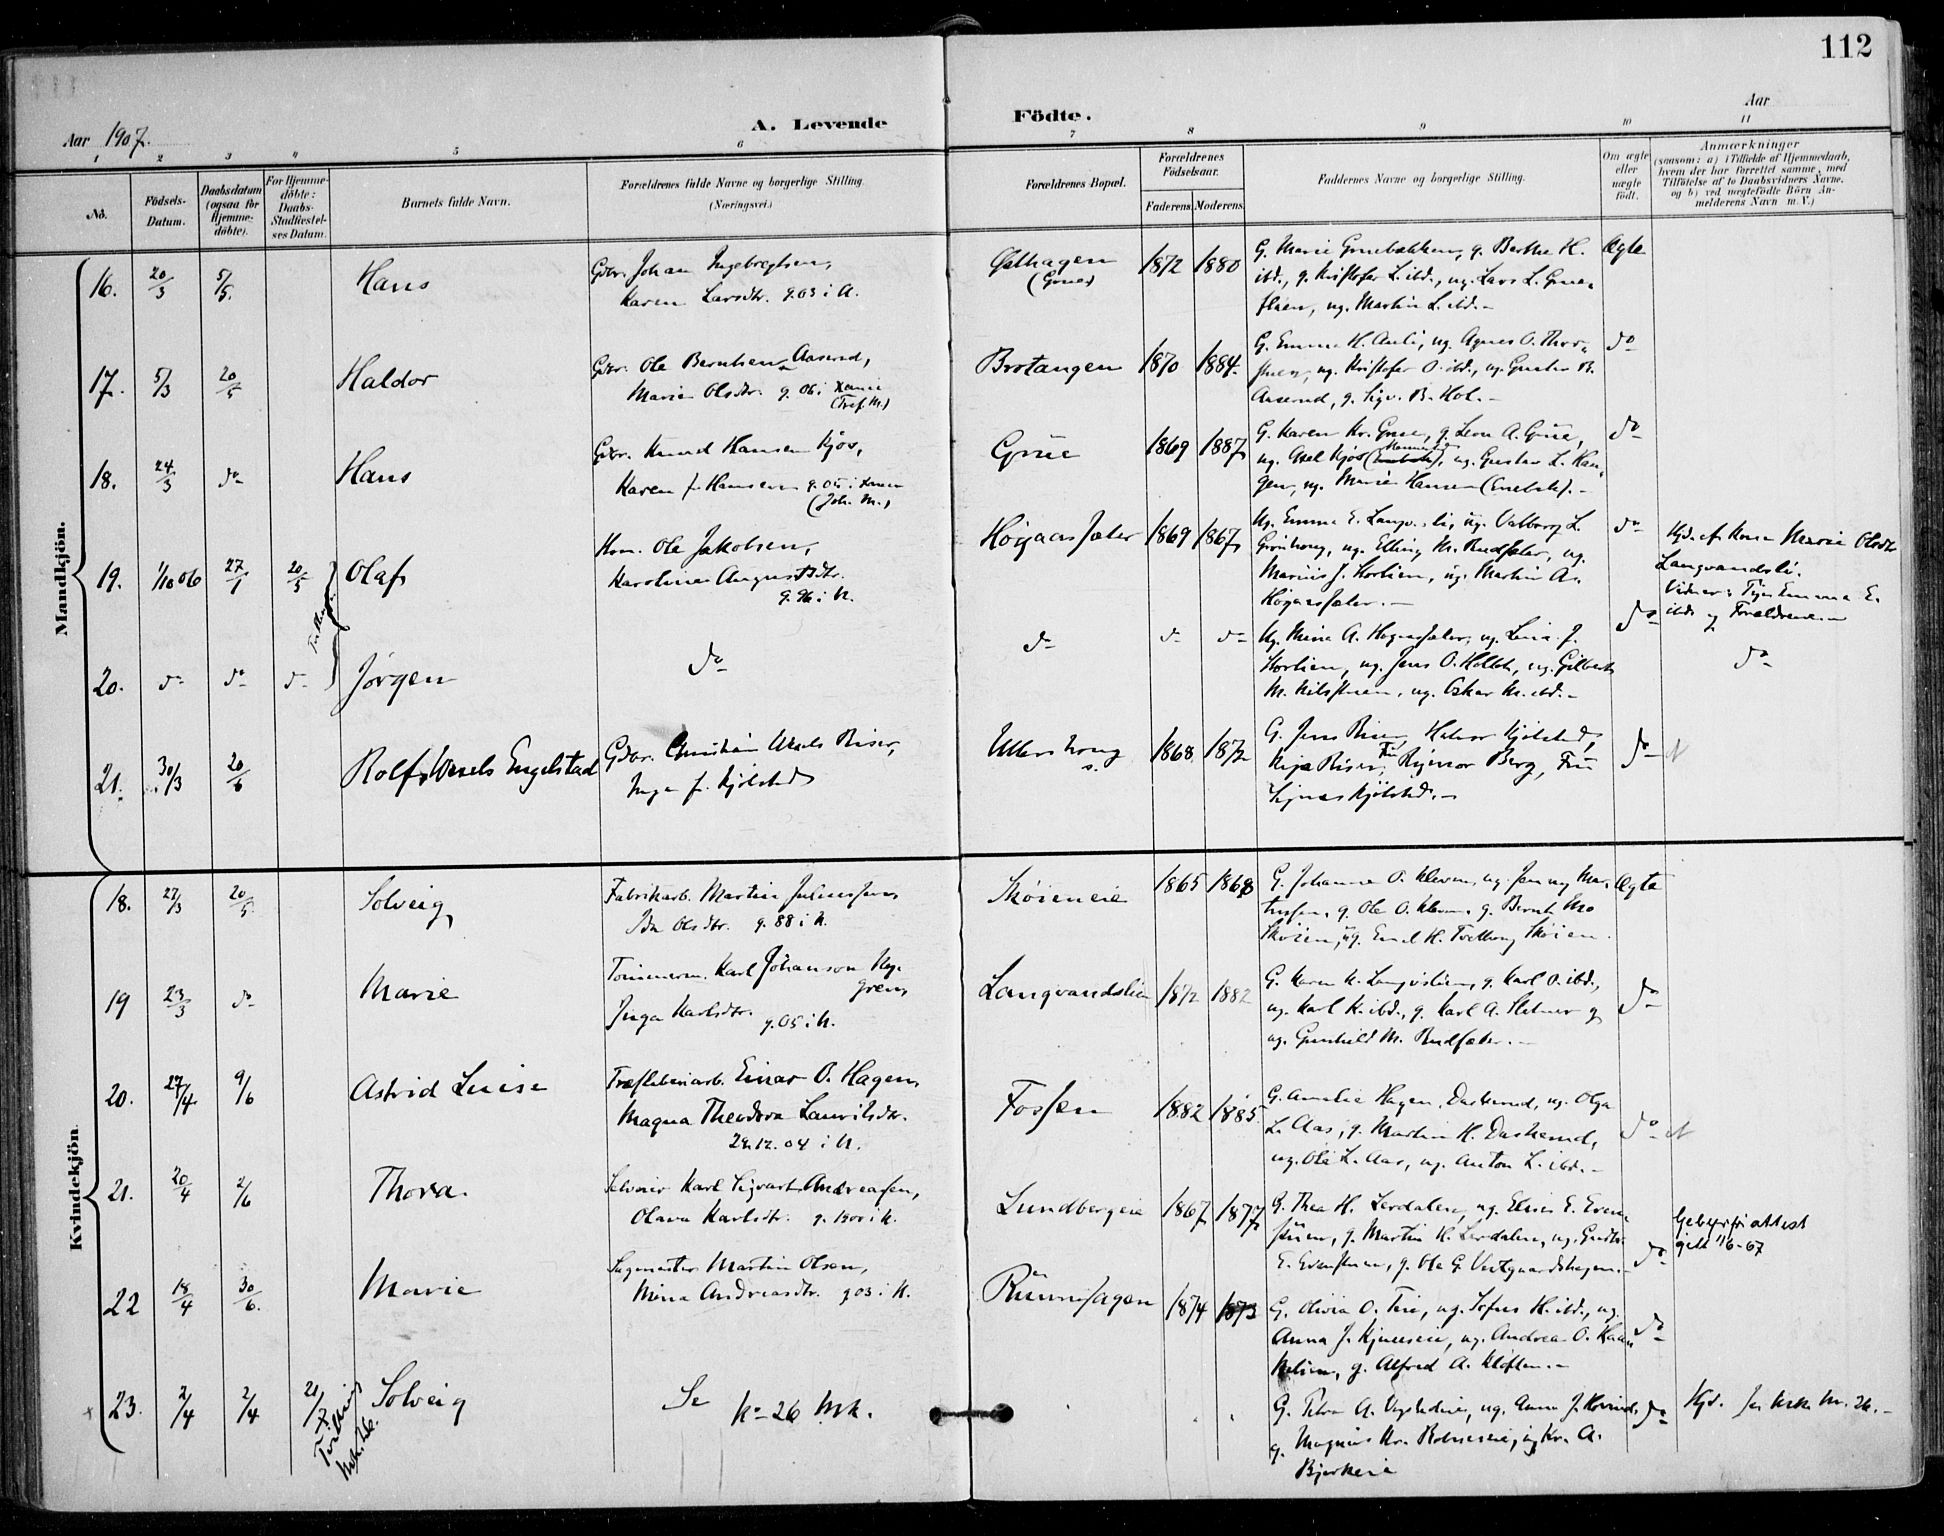 112
Aar 1907.
A. Levende Födte.
Aar
1 2 3 4 5 6 7 8 9 10 11
No.
Födsels-Datum.
Daabsdatum (ogsaa för Hjemme-döbte).
For Hjemme-döbte: Daabs-Stadfæstel-ses Datum.
Barnets fulde Navn.
Forældrenes fulde Navne og borgerlige Stilling (Næringsvei.)
Forældrenes Bopæl.
Forældrenes Födselsaar.
Faderens. Moderens.
Faddernes Navne og borgerlige Stilling.
Om ægte eller uægte födt.
Anmærkninger
(saasom: a) i Tilfælde af Hjemmedaab, hvem der har forrettet samme, med Tilföielse af to Daabsvidners Navne, og b) ved uegtefödte Börn An-melderens Navn m. V.)
Mandkjön.
16. 20/3 5/5. Hans
Gdbr. Johan Ingebregtsen,
Karen Larsdtr. g. 03 i A.
(Grue) 1872 1880
G. Marie Gruebakken, g. Berthe H.
ibd., g. Kristofer L. ibd., ug. Lars L. Grue-
stuen, ug. Martin L. ibd. -
Ægte
17. 5/3 20/5 Haldor
Gdbr. Ole Berntsen Aaserud,
Marie Olsdtr. g. 06 i
Brotangen 1870 1884.
G. Emma H. Auli, ug. Agnes O. Thor-
stuen, ug. Kristofer O. ibd., ug. Gustav B.
Aaserud, g. Sigv. B. Hol. -
do
18. 24/3 do Hans
Gdbr. Knud Hansen Kjos,
Karen f. Hansen g. 05 i
(Joh. M.)
Grue 1869 1887
G. Karen Kr. Grue, g. Leon A. Grue,
ug. Axel Kjos, ug. Gustav L. Han-
gen, ug. Marie Hansen (Enebak). -
do
19. 1/10 06 27/1 20/5 Olaf
Hom. Ole Jakobsen,
Karoline Augustsdtr.
g. 96 i N.
Høgaassæter 1869 1867
Ug. Emma E. Langv.sli, ug. Valborg L.
Grønhoug, ug. Elling M. Rudsæter, ug.
Marius J. Stortien, ug. Martin A.
Høgaassæter. -
do
Hjd. af Kone Marie Olsdtr
Langvandsli.
Vidner: Emma E.
ibd. og Forældrene. -
20. do do do Jørgen
do
do do do
Ug. Mina A. Høgaassæter, ug. Lina J.
Stortien, ug. Jens O. Holtet, ug. Gilbert
M. Nilsstuen, ug. Oskar M. ibd. -
do
do
21. 30/3 20/6 Rolf Wesels Engelstad
Gdbr. Christian Wesels Riser,
Inga f. Kjølstad
Ullershoug s. 1868 1872
G. Jens Riser, Halvor Kjølstad,
Riser, Fru Berg, Fru
Signe Kjølstad. -
do
Kvindekjön.
18. 27/3 20/5. Solveig
Fabrikarb. Martin Juliussen,
Ida Olsdtr. g. 88 i N.
Skøieneie 1865 1868
G. Johanne O. Kleven, ug. Jenny Mar-
tinsen, g. Ole O. Kleven, g. Bernt Mo
Skøien, ug. Emil H. Tvethoug Skøien.
Ægte
19 23/3 do Marie
Tømmerm. Karl Johanson Ny-
gren,
Inga Karlsdtr. g. 05 i N.
Langvandslien 1872 1882
G. Karen K. Langvslien, g. Karl O. ibd.,
ug. Karl K. ibd., g. Karl A. Setner og
ug. Gunhild M. Rudsæter. -
do
20. 27/4 9/6 Astrid Luise
Træsliberiarb. Einar O. Hagen,
Magna Theodora Lauritsdtr.
29.12.04 i N.
Fossen 1882 1885.
G. Amalie Hagen, Daskerud, ug. Olga
L. Aas, g. Martin H. Daskerud,
ug. Ole L. Aas, ug. Anton L. ibd. -
do
21. 20/4 2/6 Thora.
Selveier Karl Sigvart Andreasen,
Olava Karlsdtr. g. 1900 i N.
Lundbergeie 1867 1877
G. Thea H. Lerdalen, ug. Elise E. Even-
stuen, g. Martin H. Lerdalen, ug.
E. Evenstuen, g. Ole G. Vestgaardshagen. -
do
Gebyrfri attest
gitt 1/6-67
22 18/4 30/6. Marie
Sagmester Martin Olsen,
Mina Andreasdtr. g. 03 i N.
1874 1873
G. Olivia O. Tise, ug. Sofus H. ibd., ug.
Anna J. Kjuuseie, ug. Andrea O. Haan
g. Alfred A. Kløften. -
do
23. 2/4 2/4 21/7 Solveig
Tvilling
Se No 26 Mk.
G. Petra A., ug. Anna J.
g. Magnus Kr., ug. Kr. A.
Bjerkeie
do
Hjd. Se Mk. Nr. 26. -